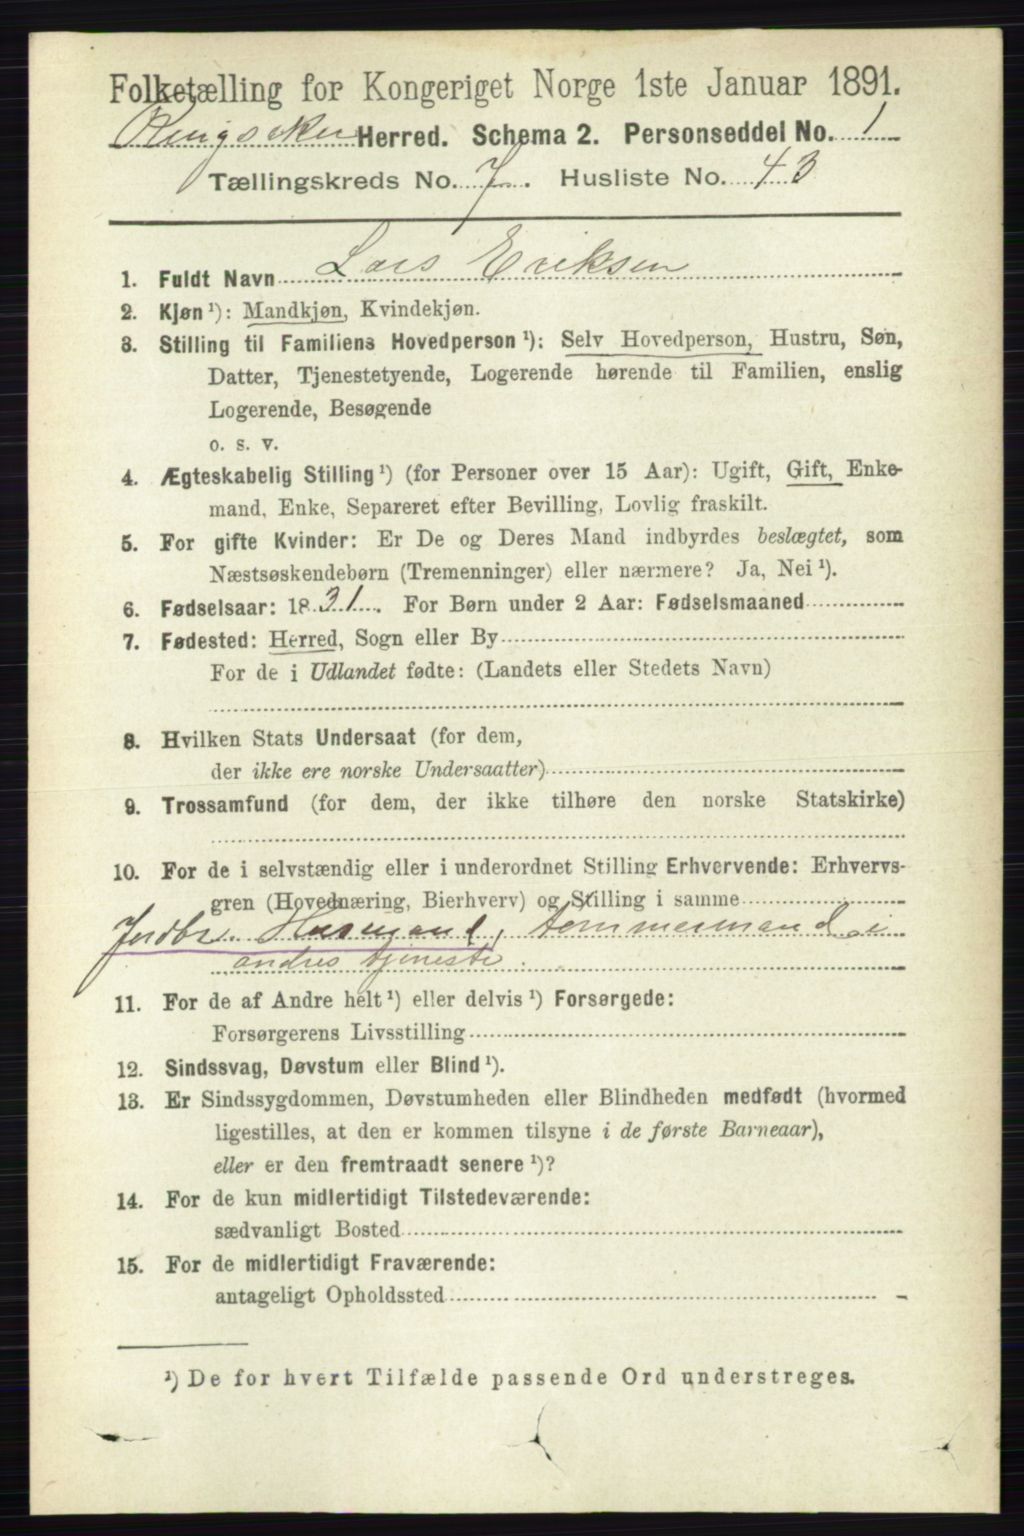 Folketælling for Kongeriget Norge 1ste Januar 1891.
Ringsaker Herred. Schema 2. Personseddel No. 1
Tællingskreds No. 7. Husliste No. 43
1. Fuldt Navn Lars Eriksen
2. Kjøn ¹): Mandkjøn, Kvindekjøn.
3. Stilling til Familiens Hovedperson ¹): Selv Hovedperson, Hustru, Søn,
Datter, Tjenestetyende, Logerende hørende til Familien, enslig
Logerende, Besøgende
o. s. v.
4. Ægteskabelig Stilling ¹) (for Personer over 15 Aar): Ugift, Gift, Enke-
mand, Enke, Separeret efter Bevilling, Lovlig fraskilt.
5. For gifte Kvinder: Er De og Deres Mand indbyrdes beslægtet, som
Næstsøskendebørn (Tremenninger) eller nærmere? Ja, Nei ¹).
6. Fødselsaar: 1831. For Børn under 2 Aar: Fødselsmaaned
7. Fødested: Herred, Sogn eller By
For de i Udlandet fødte: (Landets eller Stedets Navn)
8. Hvilken Stats Undersaat (for dem,
der ikke ere norske Undersaatter)
9. Trossamfund (for dem, der ikke tilhøre den norske Statskirke)
10. For de i selvstændig eller i underordnet Stilling Erhvervende: Erhvervs-
gren (Hovednæring, Bierhverv) og Stilling i samme
Jordbr. Husmand, tømmermand i
andres tjeneste.
11. For de af Andre helt ¹) eller delvis ¹) Forsørgede:
Forsørgerens Livsstilling
12. Sindssvag, Døvstum eller Blind ¹).
13. Er Sindssygdommen, Døvstumheden eller Blindheden medfødt (hvormed
ligestilles, at den er kommen tilsyne i de første Barneaar),
eller er den fremtraadt senere ¹)?
14. For de kun midlertidigt Tilstedeværende:
sædvanligt Bosted
15. For de midlertidigt Fraværende:
antageligt Opholdssted
¹) De for hvert Tilfælde passende Ord understreges.